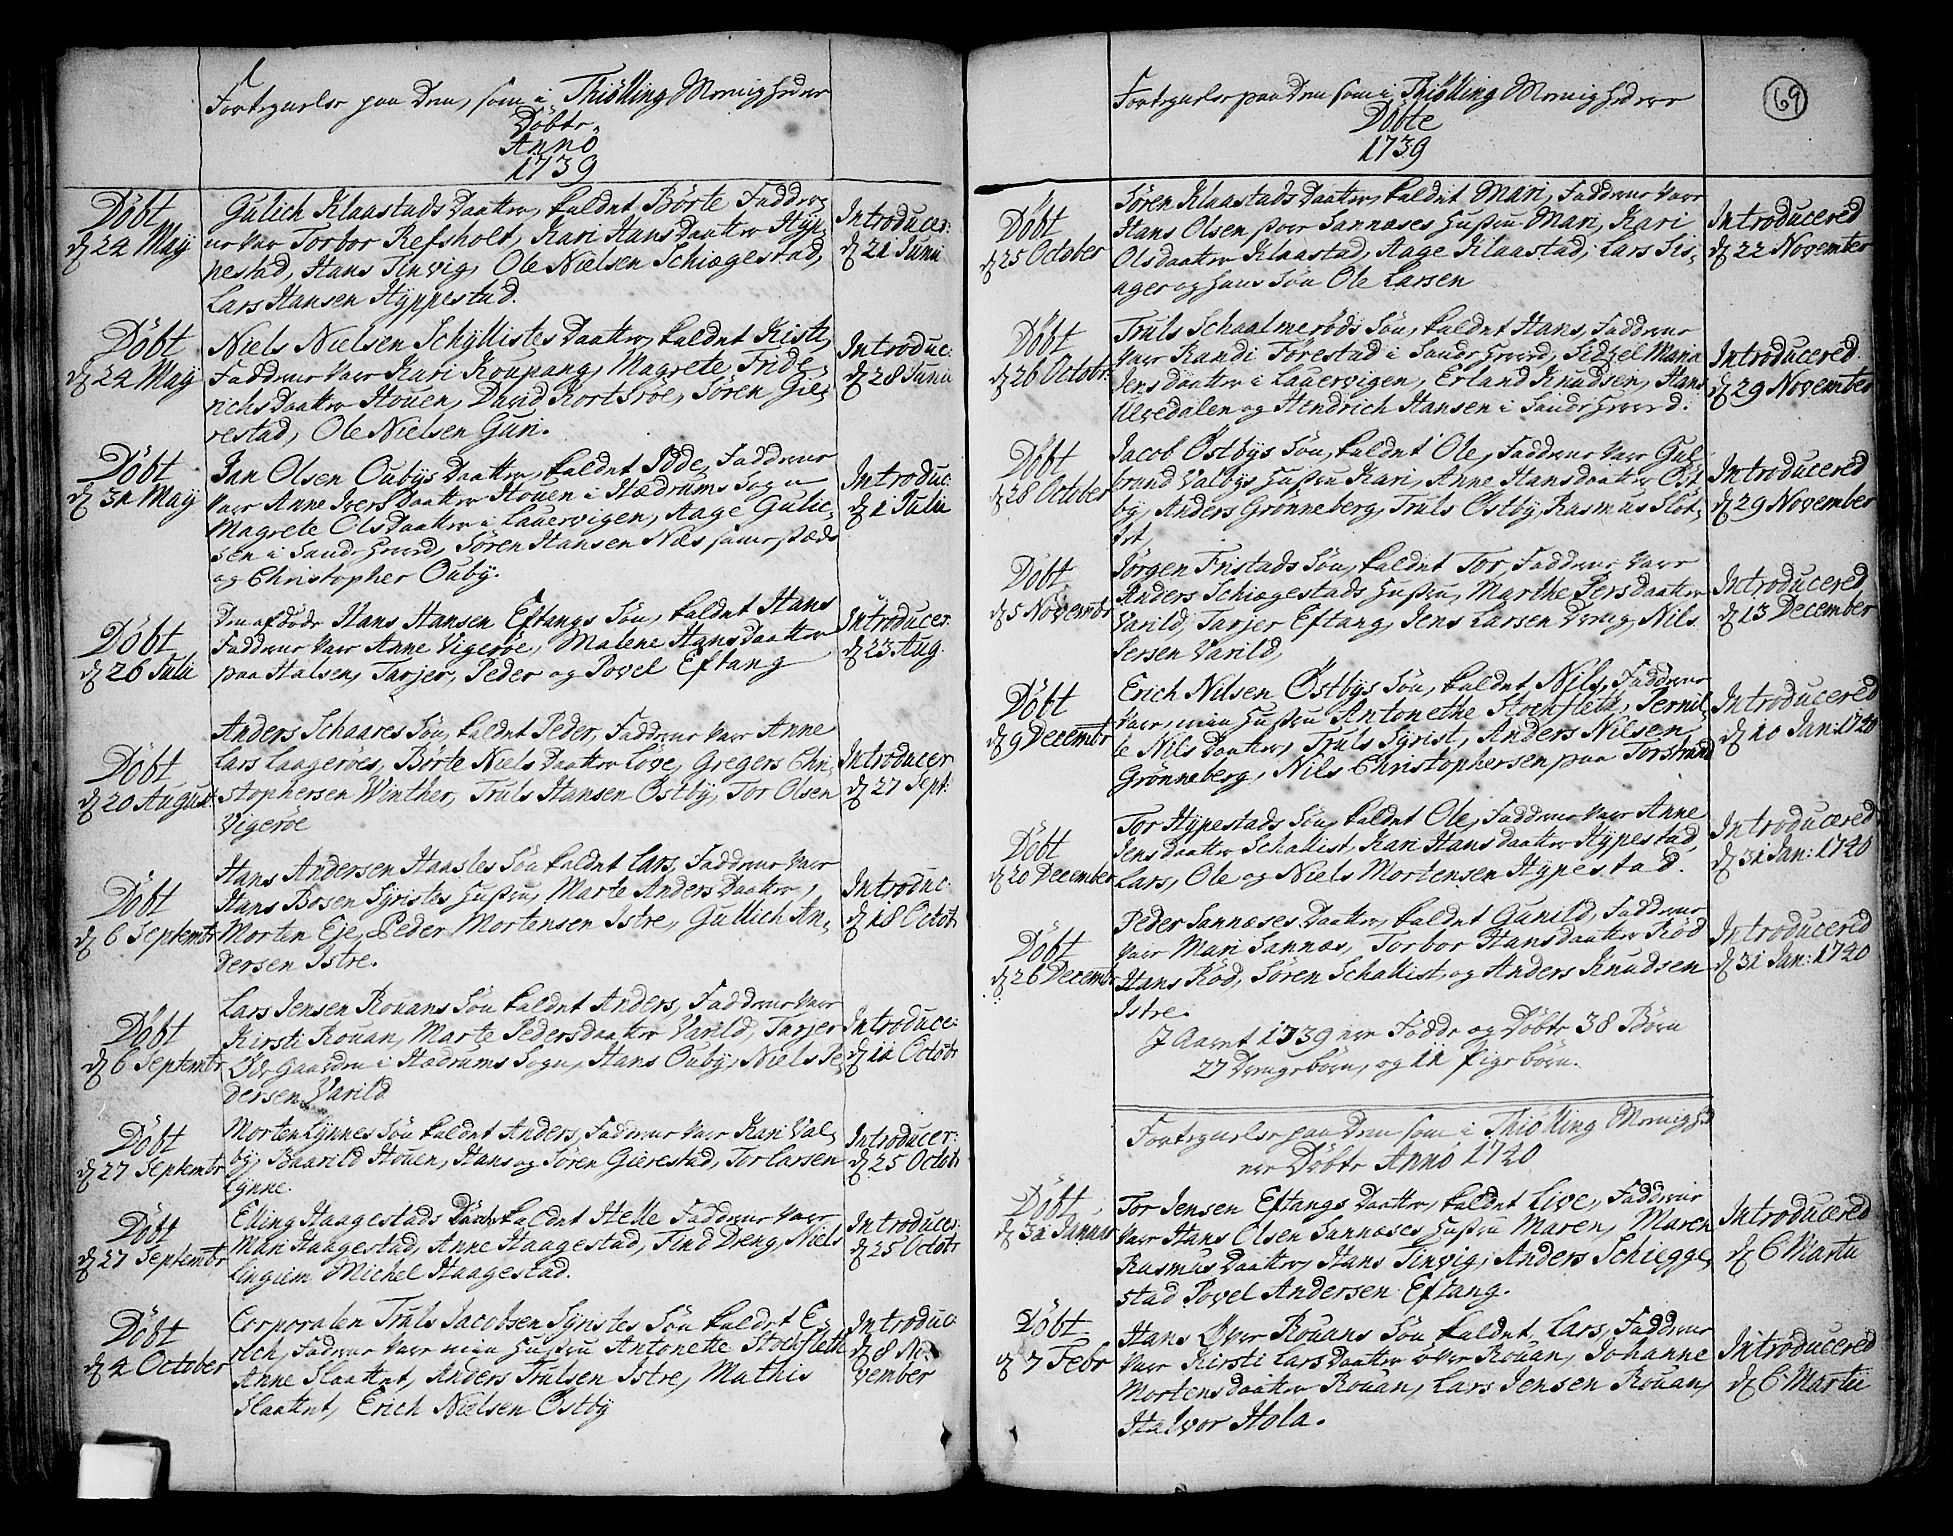 Fortegnelse paa Dem, som i Thiølling Menigheder
Døbte
Anno
1739
Døbt
d 24 May
Gulich Klaastads Daatter, kaldet Børte, Fadder,
ne var Torbor Refsholt, Kari Hansdaatter Hÿp,
pestad, Hans Tinvig, Ole Nielsen Schiægestad,
Lars Hansen Hÿppestad.
Introducer:
d 21 Junii
Døbt
d 24 May
Niels Nielsen Schÿllistes Daatter, kaldet Kisti,
Fadderne var Kari Koupang, Magrete Fride,
richsdaatter Houen, David Kortsröe, Søren Gie,
restad, Ole Nielsen Gun.
Introduc:
d 28 Junii
Døbt
d 31 May
Jan Olsen Oubÿs Daatter, kaldet Idde, Fadderne
var Anne Iversdaatter Houen i Hædrums Sogn
Magrete Olsdaatter i Lauervigen, Aage Gulic,
sen i Sandeherred, Søren Hansen Næs samestæds
og Christopher Oubÿ.
Introduc:
d 1 Julii
Døbt
d 26 Julii
Den afdøde Hans Hansen Eftangs Søn, kaldet Hans
Fadderne var Anne Vigerøe, Malene Hansdaatter
paa Halsen, Tarjer, Peder og Povel Eftang
Introducer:
d 23 Aug.
Døbt
d 20 August:
Anders Schaares Søn, kaldet Peder, Fadderne var Anne
Lars Laagerøes, Børte Nielsdaatter Løve, Gregers Chri
stophersen Winther, Truls Hansen Østbÿ, Tor Olsen
Vigerøe
Introducer
d 27 Sept:
Døbt
d 6 Septembr
Hans Andersen Haasles Søn kaldet Lars, Fadderne var
Hans Bosen Sÿristes Hustru, Marte Andersdaatter,
Morten Eje, Peder Mortensen Istre, Gullich An,
dersen Istre.
Introduc:
d 18 Octobr
Døbt
d 6 Septembr
Lars Jensen Rouans Søn kaldet Anders, Fadderne var
Kirsti Rouan, Marte Pedersdaatter Varild, Tarjer
Ødegaarden i Hædrums Sogn, Hans Oubÿ, Niels Pe,
dersen Varild
Introduce:
d 11 Octobr
Døbt
d 27 Septembr
Morten Lÿnnes Søn kaldet Anders, Fadderne var Kari Val,
bÿ, Baarild Houen, Hans og Søren Gierestad, Tor Larsen
Lÿnne.
Introducer:
d 25 Octobr
Døbt
d 27 Septembr
Elling Haagestads Daatter kaldet Helle Fadderne var
Mari Haagestad, Anne Haagestad, Find Dreng, Niels
Lingum Michel Haagestad.
Introducer:
d 25 Octobr
Døbt
d 4 October
Corporalen Truls Jacobsen Sÿristes Søn kaldet E,
rich, Fadderne var min Hustru Antonette Stochfleth
Anne Slaattet, Anders Trulsen Istre, Mathis
Slaattet, Erich Nielsen Østbÿ
Introduc
d 8 No
vember
69
Fortegnelse paa Dem som i Thiølling Menighed ere
Døbte
1739
Døbt
d 25 October
Søren Klaastads Daatter, kaldet Mari, Fadderne var
Hans Olsen store Sannæses Hustru Mari, Kari
Olsdaatter Klaastad, Aage Klaastad, Lars Lis,
ager og hans Søn Ole Larsen
Introducered
d 22 November
Døbt
d 26 Octobr
Truls Schaalmerøds Søn, kaldet Hans, Fadderne
var Randi Førestad i Sandeherred, Sidzel Maria
Jensdaatter i Lauervigen, Erland Knudsen, Hans
Ulvedalen og Hendrich Hansen i Sandeherred.
Introducered
d 29 November
Døbt
d 28 October
Jacob Østbÿs Søn, kaldet Ole, Fadderne var Gul
brand Valbÿs Hustru Kari, Anne Hansdaatter Øst
bÿ, Anders Grønneberg, Truls Østbÿ, Rasmus Slot,
tet,
Introducered
d 29 November
Døbt
d 5 Novembr
Jørgen Fristads Søn, kaldet Tor, Fadderne var
Anders Schiægestads Hustru, Marthe Persdaatter
Varild, Tarjer Eftang, Jens Larsen Dreng, Nils
Persen Varild,
Introducered
d 13 December
Døbt
d 9 Decembr
Erich Nilsen Østbÿs Søn, kaldet Nils, Fadderne
var, min Hustru Antonethe Stochfleth, Pernil,
le Nilsdaatter, Truls Sÿrist, Anders Nilsen
Grønneberg, Nils Christophersen paa Torstrand
Introducered
d 10 Jan: 1740
Døbt
d 20 December
Tor Hÿpestads Søn, kaldet Ole, Fadderne var Anne
Jensdaatter Schalist Kari Hansdaatter Hÿpestad,
Lars, Ole og Niels Mortensen Hÿpestad.
Introducered
d 31 Jan: 1740
Døbt
d 26 Decembr
Peder Sannæses Daatter, kaldet Gunild, Fadderne
var Mari Sannæs, Torbor Hansdaatter Rød
Hans Rød, Søren Schalist, og Anders Knudsen
Istre.
Introducered
d 31 Jan: 1740
I Aaret 1739 ere Fødde og Døbte 38 Børn
27 Drengebørn, og 11 Pigebørn.
Fortegnelse paa Dem som i Thiølling Menighed
ere Døbte Anno 1740
Døbt
d 31 Januar
Tor Jensen Eftangs Daatter, kaldet Live, Fadderne
var Hans Olsen Sannæses Hustru Maren, Maren
Rasmusdaatter, Hans Tinvig, Anders Schiegge,
stad Povel Andersen Eftang.
Introducered
d 6 Martii
Døbt
d 7 Febr
Hans Øver Rouans Søn kaldet Lars, Fadderne
var Kirsti Larsdaatter over Rouan, Johanne
Mortensdaatter Rouan, Lars Jensen Rouan,
Halvor Hola.
Introducered
d 6 Martii